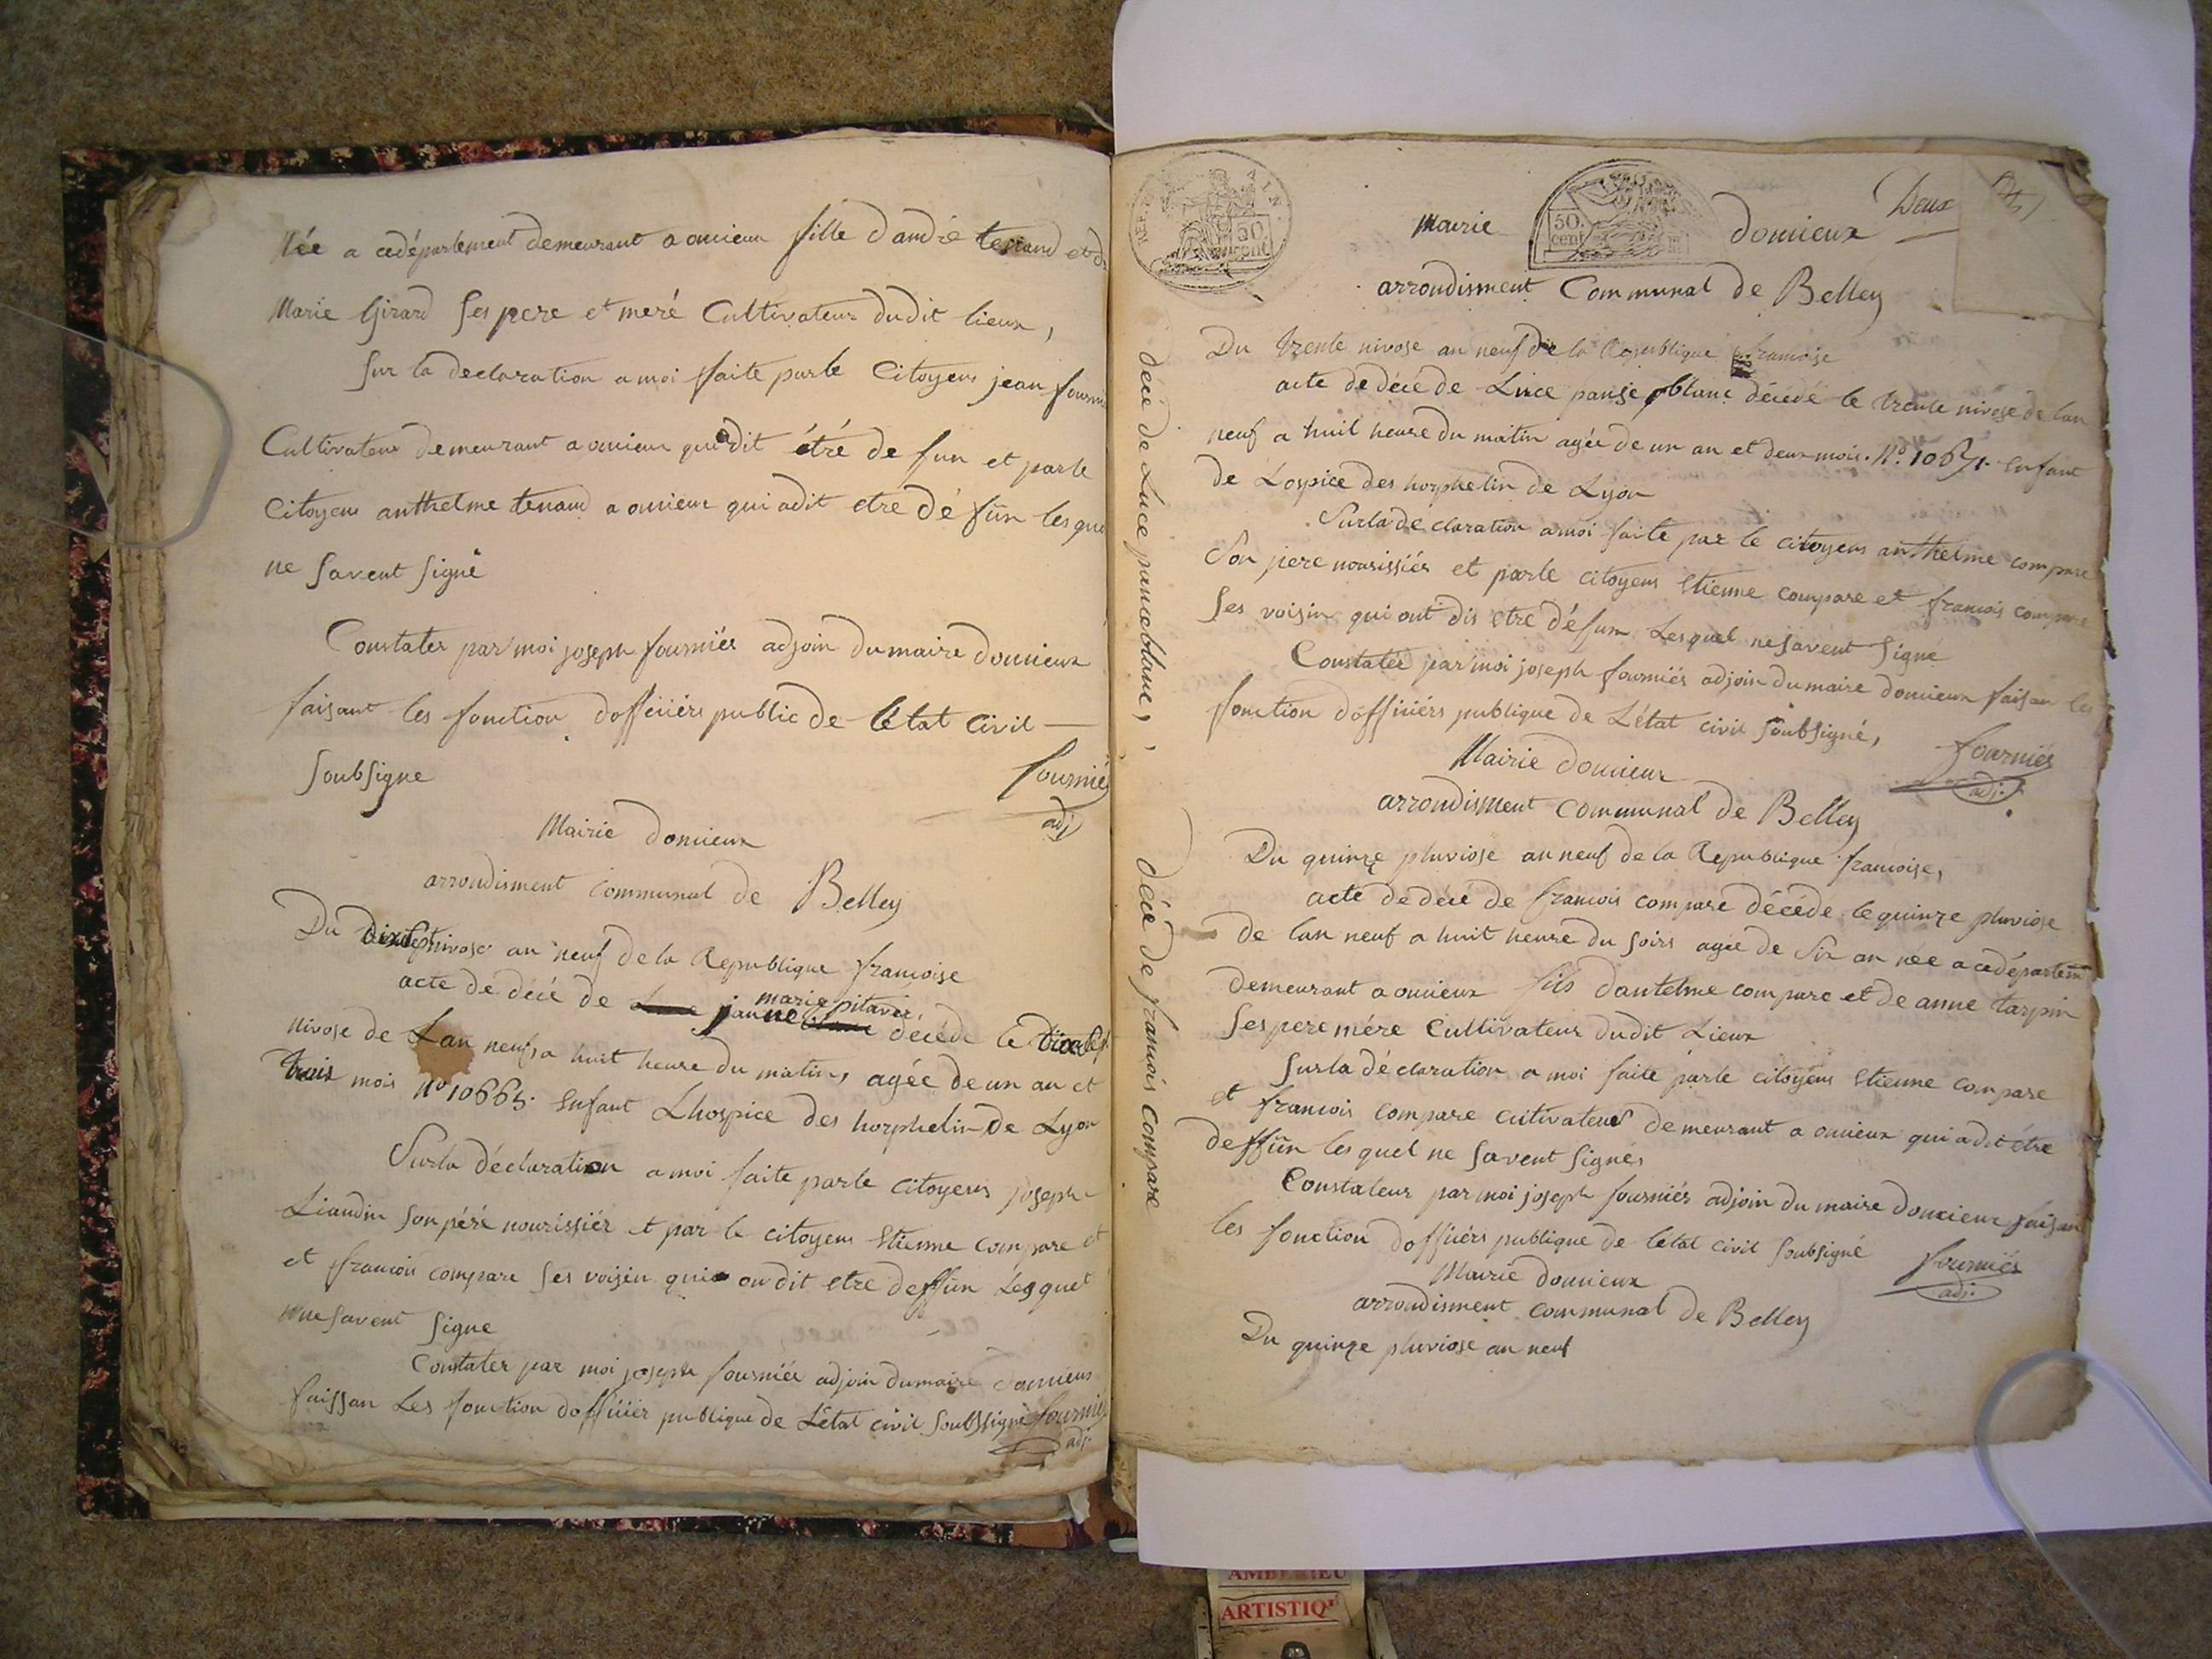 Née a cedépartement demeurant a onnieux fille d'andré tenand et d
Marie Girard ses pere et meré Cultivateur dudit lieux,
Sur la declaration a moi faite par le Citoyens jean fournié
Cultivateur demeurant a onnieux qui dit étré de fun et par le
Citoyens anthelme tenand a onnieux qui a dit etre dé fun lesque
ne savent signé
Constater par moi joseph fourniér adjoin du maire donnieux
faisant les fonction dofficiérs public de létat Civil —
soubsigne
fourniés
adj
Mairie donnieux
arrondisment Communal de Belley
Du nivose an neuf de la Republique francoise
marie pitavié,
acte de décé de décéde le
nivose de Lan neuf a huit heure du matin, agée de un an et
trois mois No 10665. Enfant Lhospice des horphelin de Lyon
Surla déclaration a moi faite parle citoyens joseph
Liaudin son péré nourissiér et par le citoyens Etienne Compare et
et francois compare ses voisin qui on dit etre deffun Lesquel
ne savent signe
Constater par moi joseph fourniér adjoin dumaire donnieux
faissan Les fonction dofficiér publique de Létat civil soubssigné fourniés
adj.
Deux
Mairie donnieux
50.
cent
arrondisment Communal de Belley
Du trente nivose an neuf de la Republique francoise
acte de décé de Luce panse blanc décédé le trente nivose de lan
neuf a huit heure du matin agée de un an et deux mois. No. 1067. Enfant
de Lospice des horphelin de Lyon
Surla déclaration a moi faite par le citoyens anthelme compare
Son pere nourissiés et parle citoyens Etienne compare et francois compare
ses voisin qui ont dis etre défun Lesquel ne savent signé
Constatée par moi joseph fourniés adjoin du maire donnieux faisan les
fonction dofficiérs publique de Létat civil soubsigné,
fourniés
adj.
Mairie donnieux
arrondisment communal de Belley
Du quinze pluviose an neuf de la Republique francoise,
acte de décé de francois compare décéde le quinze pluviose
de lan neuf a huit heure du soirs agée de six an née a cedépartem
demeurant a onnieux fils dantelme compare et de anne tarpin
ses pere mére Cultivateur dudit Lieux
Surla déclaration a moi faite parle citoyens Etienne compare
et francois compare cultivateur demeurant a onnieux qui a dit étre
deffun lesquel ne savent signés
Constateur par moi joseph fourniés adjoin du maire donnieux faisan
les fonction dofficiérs publique de létat civil soubsigné
fourniés
adj.
Mairie donnieux
arrondisment communal de Belley
Du quinze pluviose an neuf
décé de Luce panceblanc,
décé de francois compare
ARTISTIQ